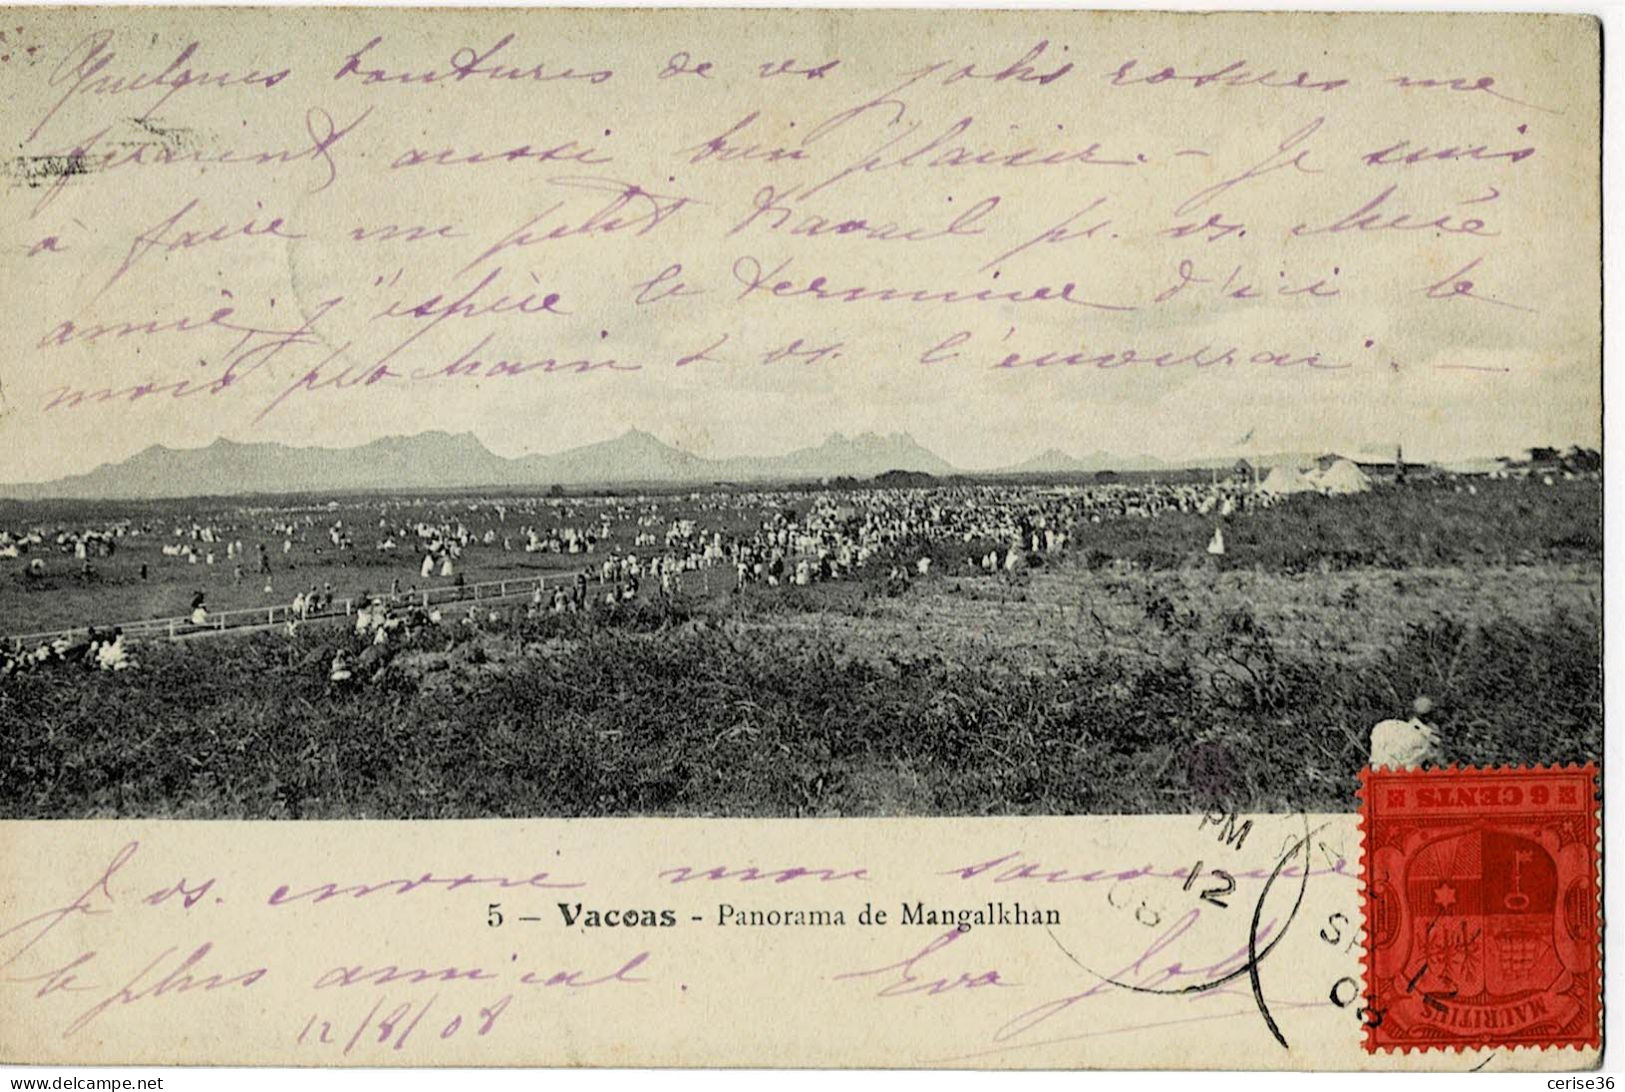 Quelques boutures de vs jolis rosiers me
feraient aussi bien plaisir. - Je suis
à faire un petit travail pr. vs. chère
amie, j'espère le terminer d'ici le
mois prochain & vs. l'enverrai. -
Je vs. envoie mon souvenir
5 – Vacoas - Panorama de Mangalkhan
le plus amical. Eva
12/8/08
PM
12
08
SP 12
08
6 CENTS
MAURITIUS
delcampe.net
cerise36